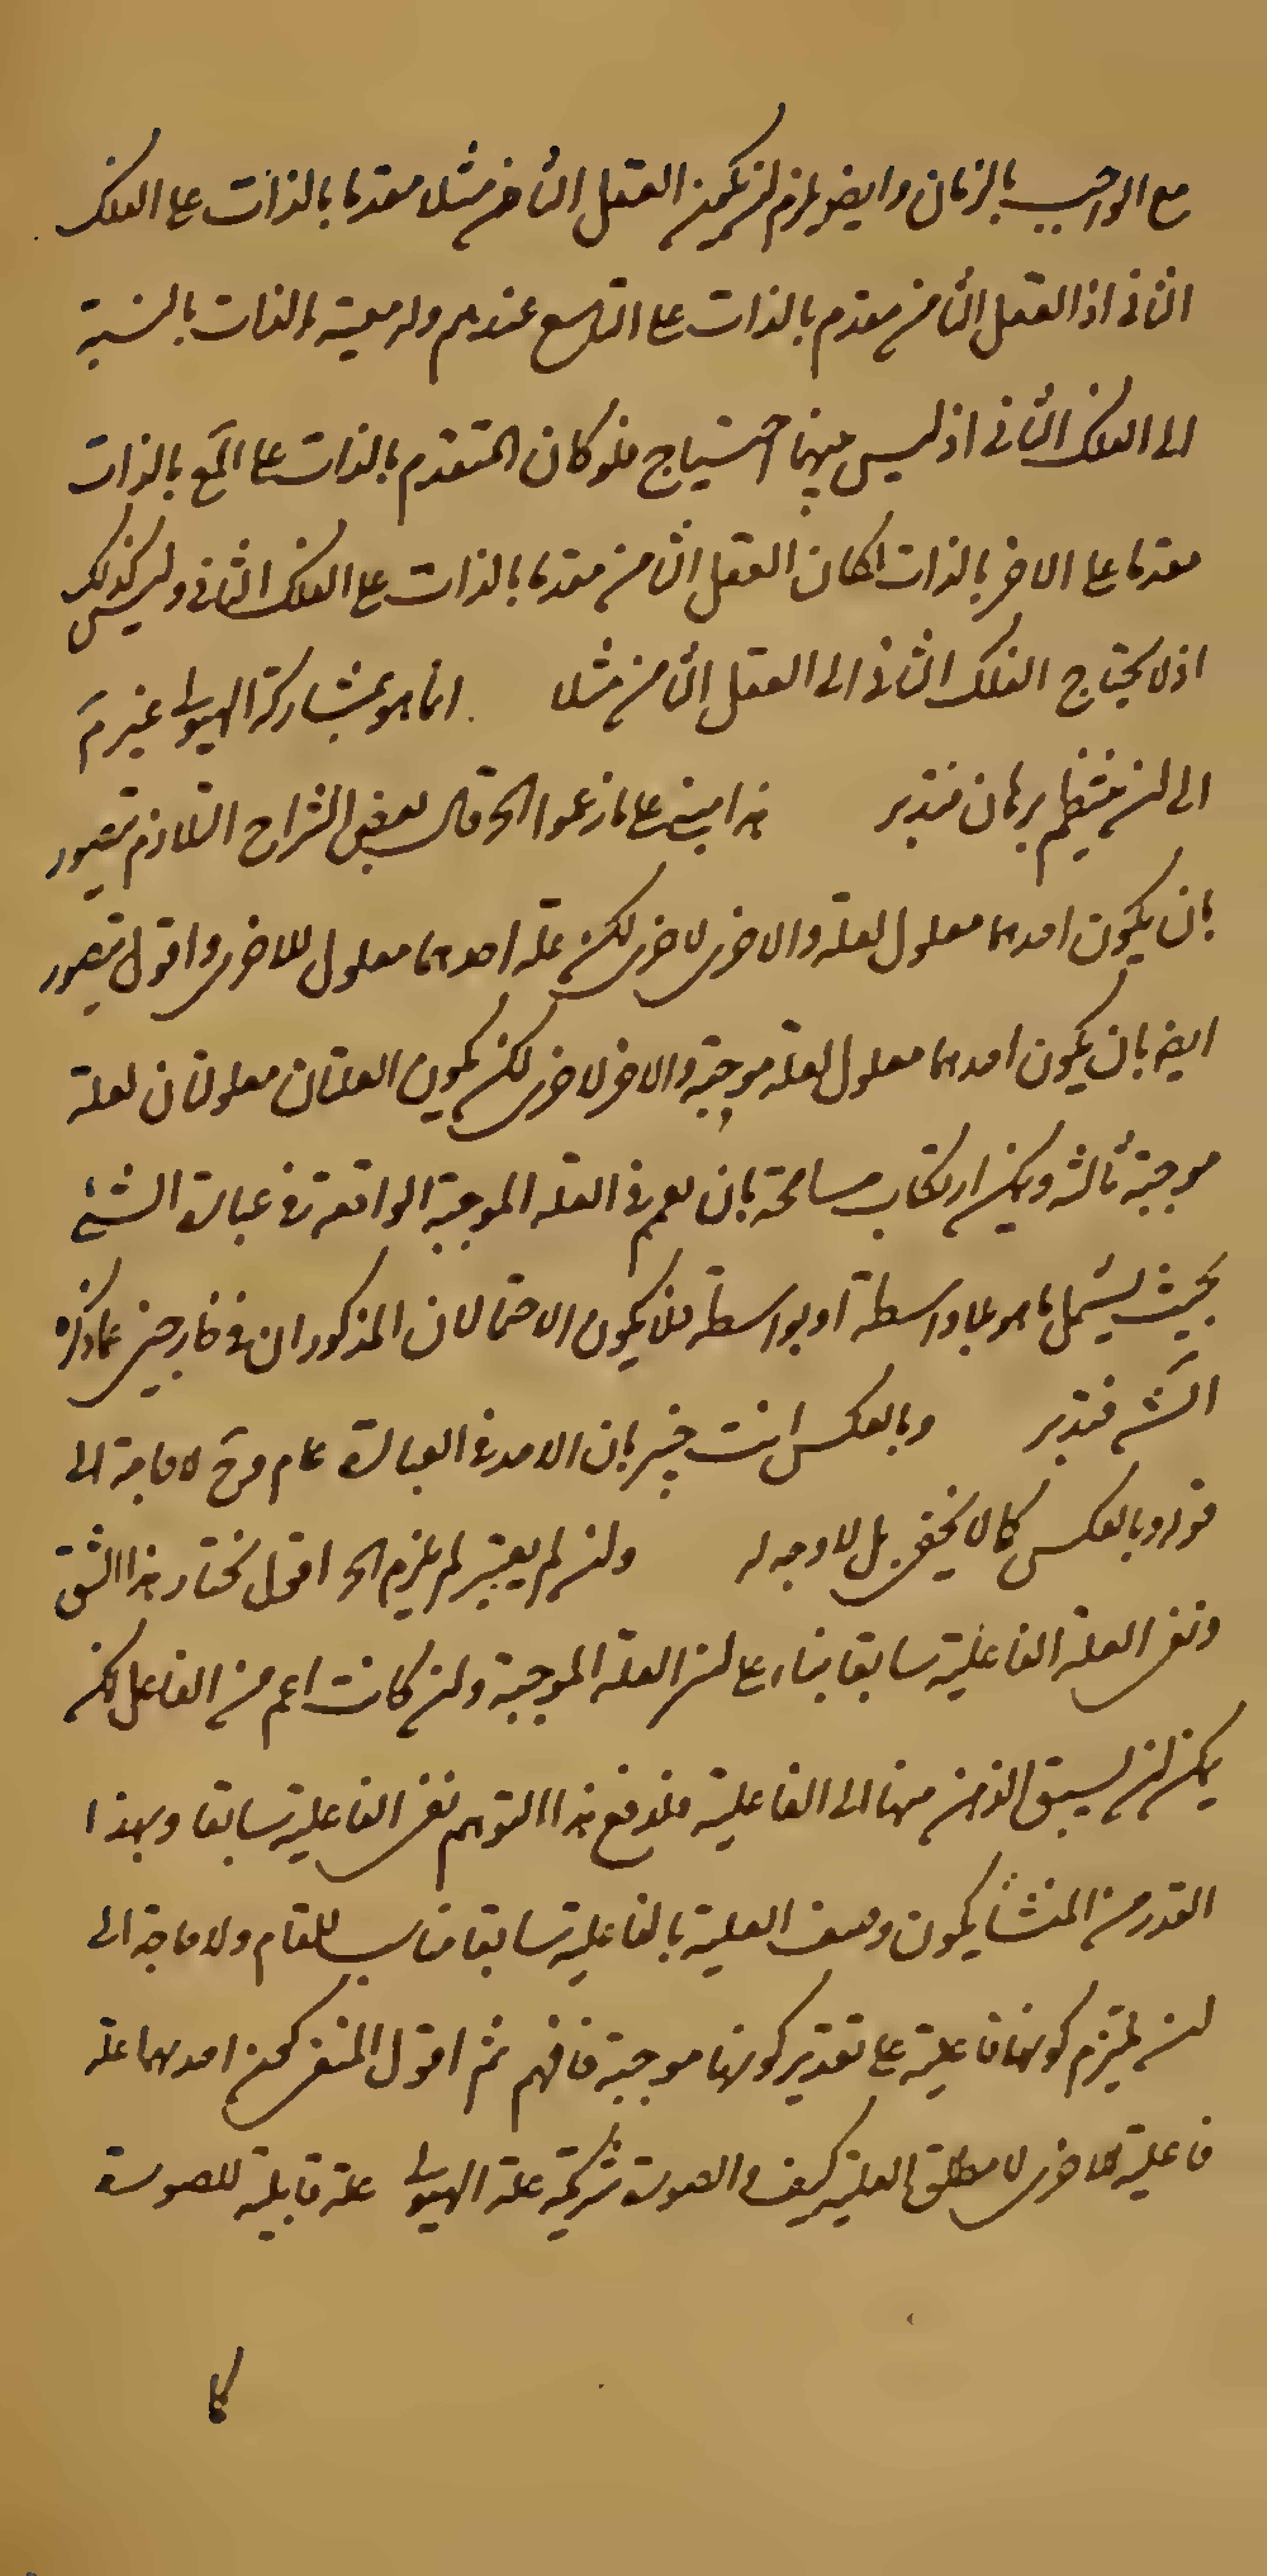 مع الواجب بالزمان وايضو يلزم ان يكون العقل الثامن مثلا مقدما بالذات على الفلك
الثانى اذ العقل الثامن مقدم بالذات على التاسع عندهم وله معية بالذات بالنسبة
الى الفلك الثانى اذ ليس بينهما احتياج فلو كان المتقدم بالذات على المع بالذات
مقدما على الاخر بالذات لكان العقل الثامن مقدما بالذات على الفلك الثانى وليس كذلك
اذ لا يحتاج الفلك الثانى الى العقل الثامن مثلا انما هو بمشاركة الهيولى غير مم
الى ان ينتظم برهان فتدبر هذا مبنى على ما زعموا الخ قال بعض الشراح التلازم يتصور
بان يكون احدهما معلول لعلة والاخرى لاخرى لكن علة احدهما معلول للاخرى واقول يتصور
ايضا بان يكون احدهما معلول لعلة موجبة والاخر لاخرى لكن يكون العلتان معلولتان لعلة
موجبة ثالثة ويمكن ارتكاب مسامحة بان يعم فى العلة الموجبة الواقعة فى عبارة الشيخ
بحيث يشمل ما هو بلا واسطة او بواسطة فلا يكون الاحتمالان المذكوران فى خارجين عما ذكره
الش فتدبر وبالعكس انت خبير بان الاحد فى العبارة عام وح لا حاجة الى
قوله وبالعكس كما لا يخفى بل لا وجه له وان لم يعتبر لم يلزم الخ اقول نختار هذا الشق
ونفى العلة الفاعلية سابقا بناء على ان العلة الموجبة وان كانت اعم من الفاعل لكن
يمكن ان يسبق الذهن منها الى الفاعلية فلدفع هذا التوهم نفى الفاعلية سابقا وبهذا
القدر من المنشأ يكون وصف العلية بالفاعلية سابقا مناسب للمقام ولا حاجة الى
ان يلتزم كونها فاعلية على تقدير كونها موجبة فافهم ثم اقول المنفى كون احدهما علة
فاعلية للاخرى لا مطلق العلية كيف والصورة شريكة علة الهيولى علة قابلية للصورة
كما